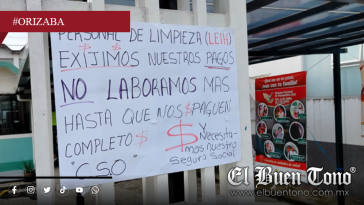 #ORIZABA
PERSONAL DE LIMPIEZA (LEIH)
EXIJIMOS NUESTROS PAGOS
NO LABORAMOS MAS
HASTA QUE NOS PAGUEN
COMPLETO $ Necesita-
mos nuestro
Seguro Social
"CSO"
El Buen Tono®
www.elbuentono.com.mx